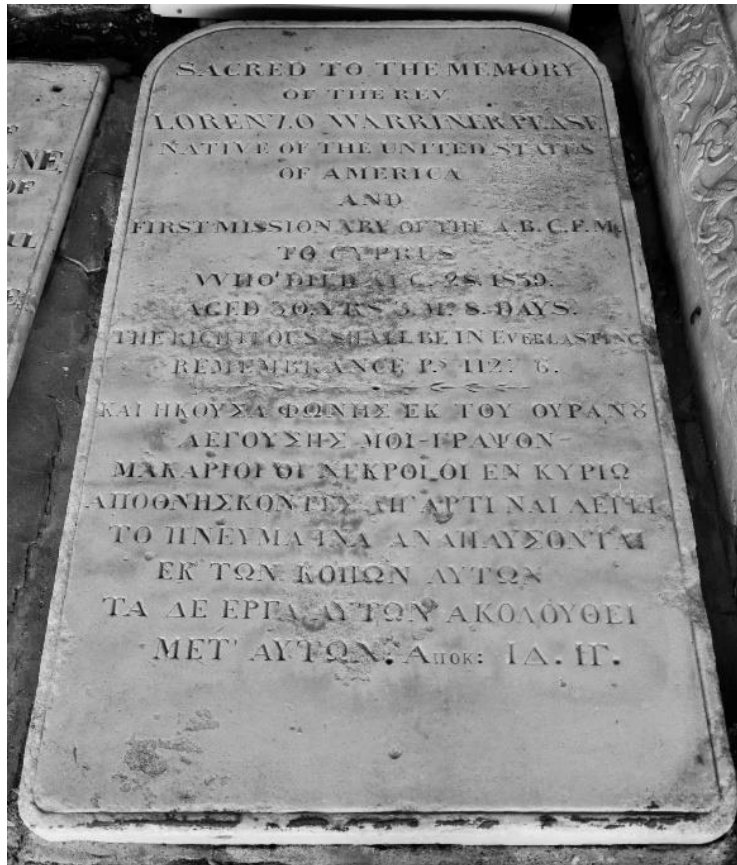 SACRED TO THE MEMORY
OF THE REV.
LORENZO WARRINER PEASE.
NATIVE OF THE UNITED STATES
OF AMERICA
AND
FIRST MISSIONARY OF THE A.B.C.F.M.
TO CYPRUS
WHO DIED AUG. 28. 1839.
AGED 30. YRS 3. Mº 8. DAYS.
THE RIGHTEOUS SHALL BE IN EVERLASTING
REMEMBRANCE Ps 112: 6.
ΚΑΙ ΗΚΟΥΣΑ ΦΩΝΗΣ ΕΚ ΤΟΥ ΟΥΡΑΝȢ
ΛΕΓΟΥΣΗΣ ΜΟΙ-ΓΡΑΨΟΝ-
ΜΑΚΑΡΙΟΙ ΟΙ ΝΕΚΡΟΙ ΟΙ ΕΝ ΚΥΡΙΩ
ΑΠΟΘΝΗΣΚΟΝΤΕΣ ΑΠ' ΑΡΤΙ ΝΑΙ ΛΕΓΕΙ
ΤΟ ΠΝΕΥΜΑ ΙΝΑ ΑΝΑΠΑΥΣΟΝΤΑΙ
ΕΚ ΤΩΝ ΚΟΠΩΝ ΑΥΤΩΝ
ΤΑ ΔΕ ΕΡΓΑ ΑΥΤΩΝ ΑΚΟΛΟΥΘΕΙ
ΜΕΤ' ΑΥΤΩΝ. Αποκ: ΙΔ. ΙΓ.
OF